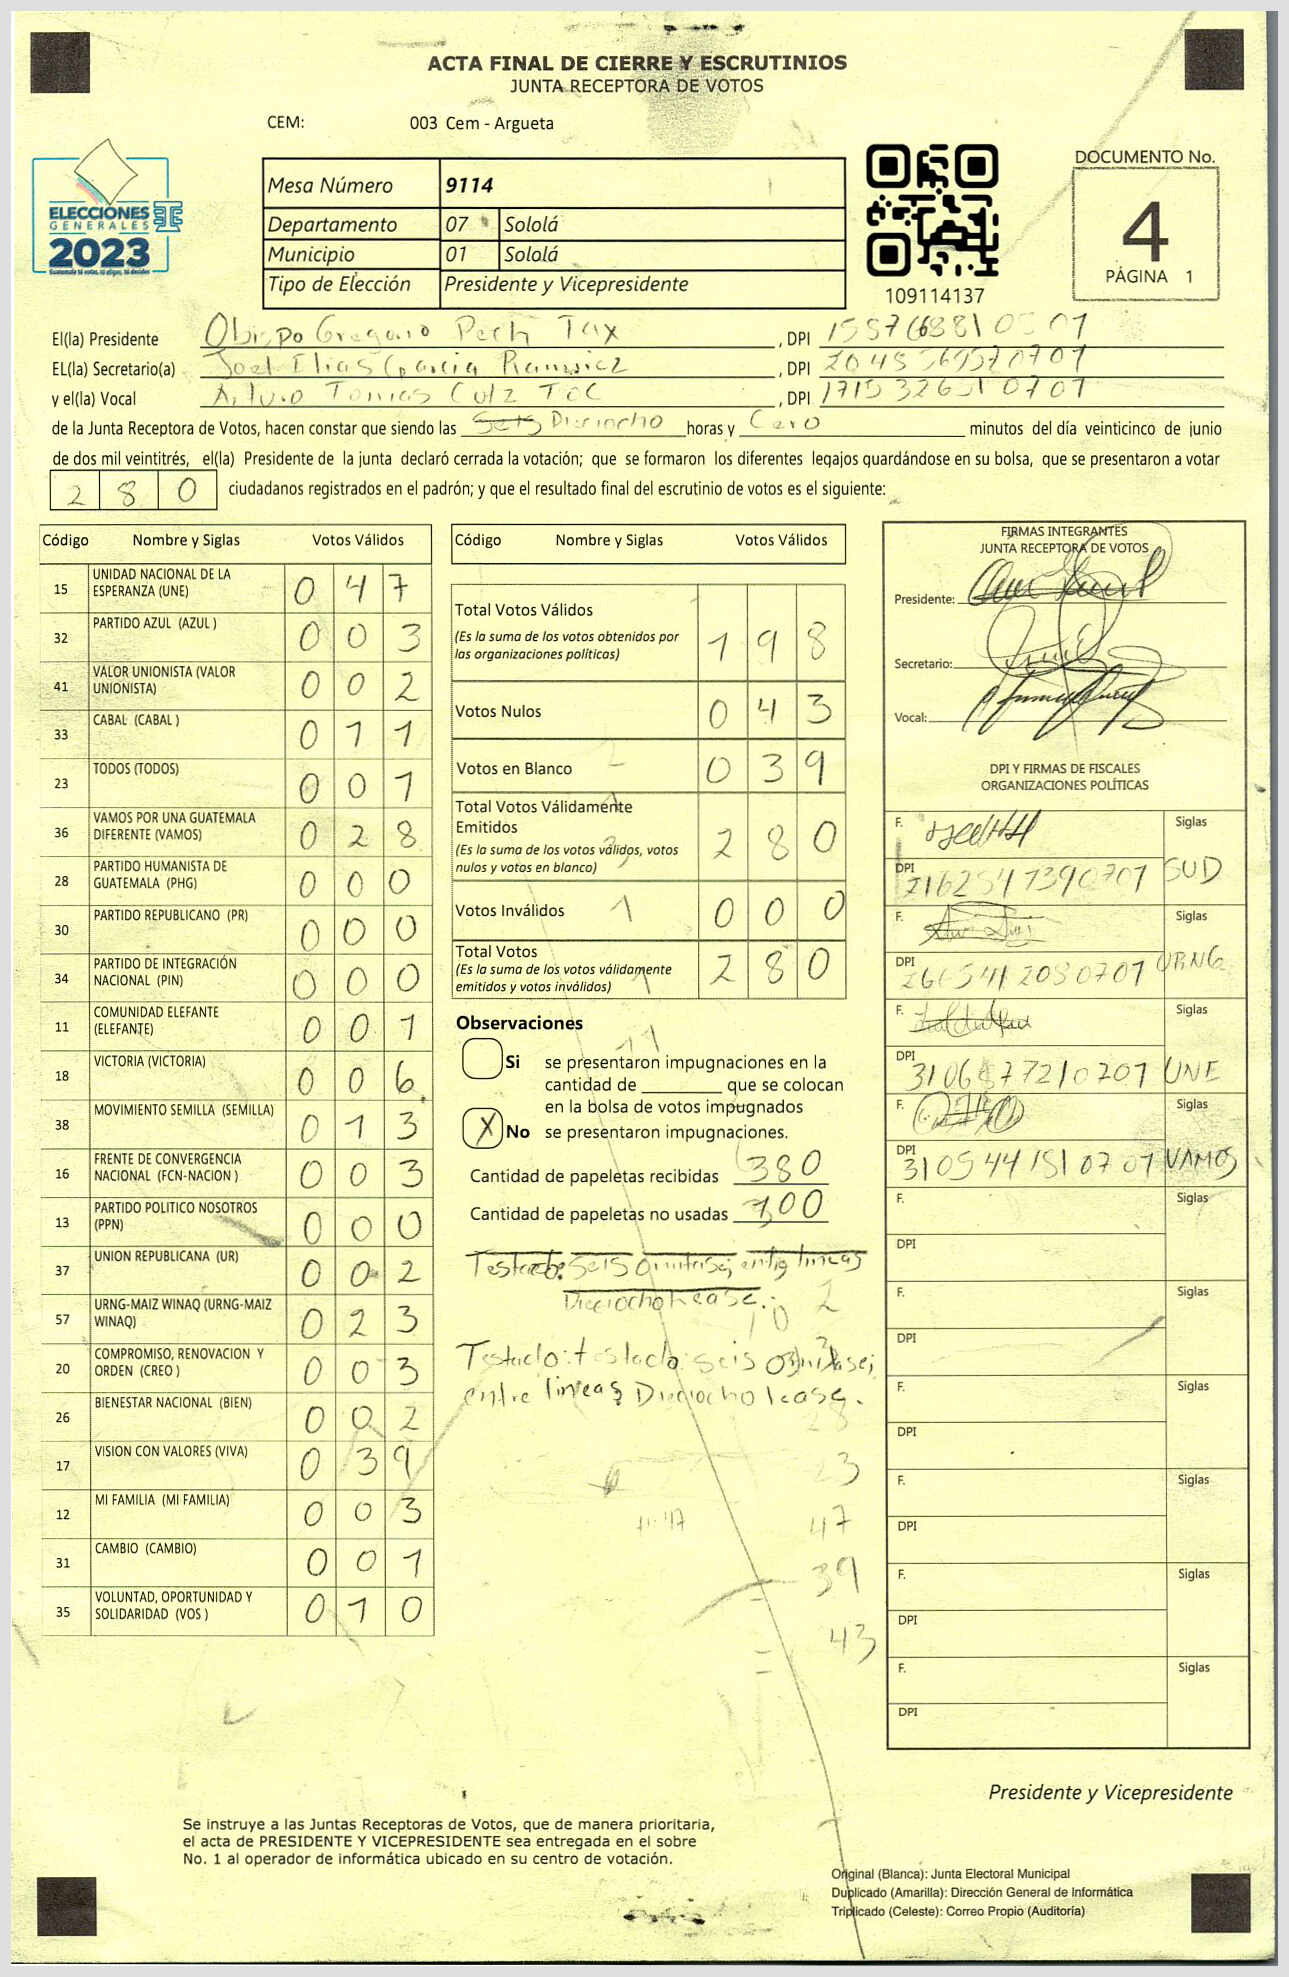 ACTA FINAL DE CIERRE Y ESCRUTINIOS
JUNTA RECEPTORA DE VOTOS
CEM: 003 Cem - Argueta
ELECCIONES
GENERALES
2023
Guatemala tú votas, tú eliges, tú decides
Mesa Número 9114
Departamento 07 Sololá
Municipio 01 Sololá
Tipo de Elección Presidente y Vicepresidente
109114137
DOCUMENTO No.
4
PÁGINA 1
El(la) Presidente Obispo Gregorio Pech Tax , DPI
EL(la) Secretario(a) Joel Elias Garcia Ramirez , DPI
y el(la) Vocal Arturo Tomas Cutz Toc , DPI
de la Junta Receptora de Votos, hacen constar que siendo las Seis Dieciocho horas y Cero minutos del día veinticinco de junio
de dos mil veintitrés, el(la) Presidente de la junta declaró cerrada la votación; que se formaron los diferentes legajos guardándose en su bolsa, que se presentaron a votar
2 8 0 ciudadanos registrados en el padrón; y que el resultado final del escrutinio de votos es el siguiente:
Código Nombre y Siglas Votos Válidos
15 UNIDAD NACIONAL DE LA ESPERANZA (UNE) 0 4 7
32 PARTIDO AZUL (AZUL ) 0 0 3
41 VALOR UNIONISTA (VALOR UNIONISTA) 0 0 2
33 CABAL (CABAL ) 0 1 1
23 TODOS (TODOS) 0 0 1
36 VAMOS POR UNA GUATEMALA DIFERENTE (VAMOS) 0 2 8
28 PARTIDO HUMANISTA DE GUATEMALA (PHG) 0 0 0
30 PARTIDO REPUBLICANO (PR) 0 0 0
34 PARTIDO DE INTEGRACIÓN NACIONAL (PIN) 0 0 0
11 COMUNIDAD ELEFANTE (ELEFANTE) 0 0 1
18 VICTORIA (VICTORIA) 0 0 6
38 MOVIMIENTO SEMILLA (SEMILLA) 0 1 3
16 FRENTE DE CONVERGENCIA NACIONAL (FCN-NACION ) 0 0 3
13 PARTIDO POLITICO NOSOTROS (PPN) 0 0 0
37 UNION REPUBLICANA (UR) 0 0 2
57 URNG-MAIZ WINAQ (URNG-MAIZ WINAQ) 0 2 3
20 COMPROMISO, RENOVACION Y ORDEN (CREO ) 0 0 3
26 BIENESTAR NACIONAL (BIEN) 0 0 2
17 VISION CON VALORES (VIVA) 0 3 9
12 MI FAMILIA (MI FAMILIA) 0 0 3
31 CAMBIO (CAMBIO) 0 0 1
35 VOLUNTAD, OPORTUNIDAD Y SOLIDARIDAD (VOS ) 0 1 0
Código Nombre y Siglas Votos Válidos
Total Votos Válidos 1 9 8
(Es la suma de los votos obtenidos por
las organizaciones políticas)
Votos Nulos 0 4 3
Votos en Blanco 0 3 9
Total Votos Válidamente
Emitidos 2 8 0
(Es la suma de los votos válidos, votos
nulos y votos en blanco)
Votos Inválidos 0 0 0
Total Votos 2 8 0
(Es la suma de los votos válidamente
emitidos y votos inválidos)
Observaciones
Si se presentaron impugnaciones en la
cantidad de ________ que se colocan
en la bolsa de votos impugnados
X No se presentaron impugnaciones.
Cantidad de papeletas recibidas 380
Cantidad de papeletas no usadas 100
Testado: seis omitase; entre lineas
Dieciocho Lease.
Testado: testado: seis omitase;
entre lineas Dieciocho lease.
28
23
47
39
43
FIRMAS INTEGRANTES
JUNTA RECEPTORA DE VOTOS
Presidente:
Secretario:
Vocal:
DPI Y FIRMAS DE FISCALES
ORGANIZACIONES POLÍTICAS
F. Siglas
DPI SUD
F. Siglas
DPI URNG
F. Siglas
DPI UNE
F. Siglas
DPI VAMOS
F. Siglas
DPI
F. Siglas
DPI
F. Siglas
DPI
F. Siglas
DPI
F. Siglas
DPI
F. Siglas
DPI
Presidente y Vicepresidente
Se instruye a las Juntas Receptoras de Votos, que de manera prioritaria,
el acta de PRESIDENTE Y VICEPRESIDENTE sea entregada en el sobre
No. 1 al operador de informática ubicado en su centro de votación.
Original (Blanca): Junta Electoral Municipal
Duplicado (Amarilla): Dirección General de Informática
Triplicado (Celeste): Correo Propio (Auditoría)